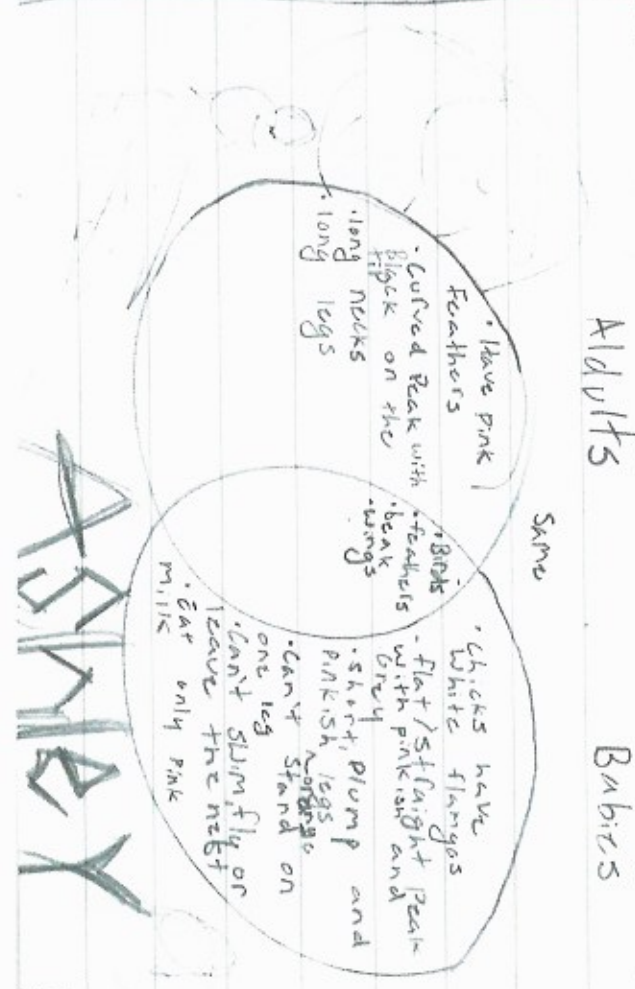 Aldults
Same
Babies
• Have pink
feathers
• Curved Peak with
Black on the
tip
• long necks
• long legs
• Birds
• feathers
• beak
• wings
• Chicks have
White flamgos
- flat/straight Peak
with pinkish and
Grey
• short, plump and
pinkish legs
orange
• Can't stand on
one leg
• Can't swim, fly or
leave the nest
• Eat only pink
milk